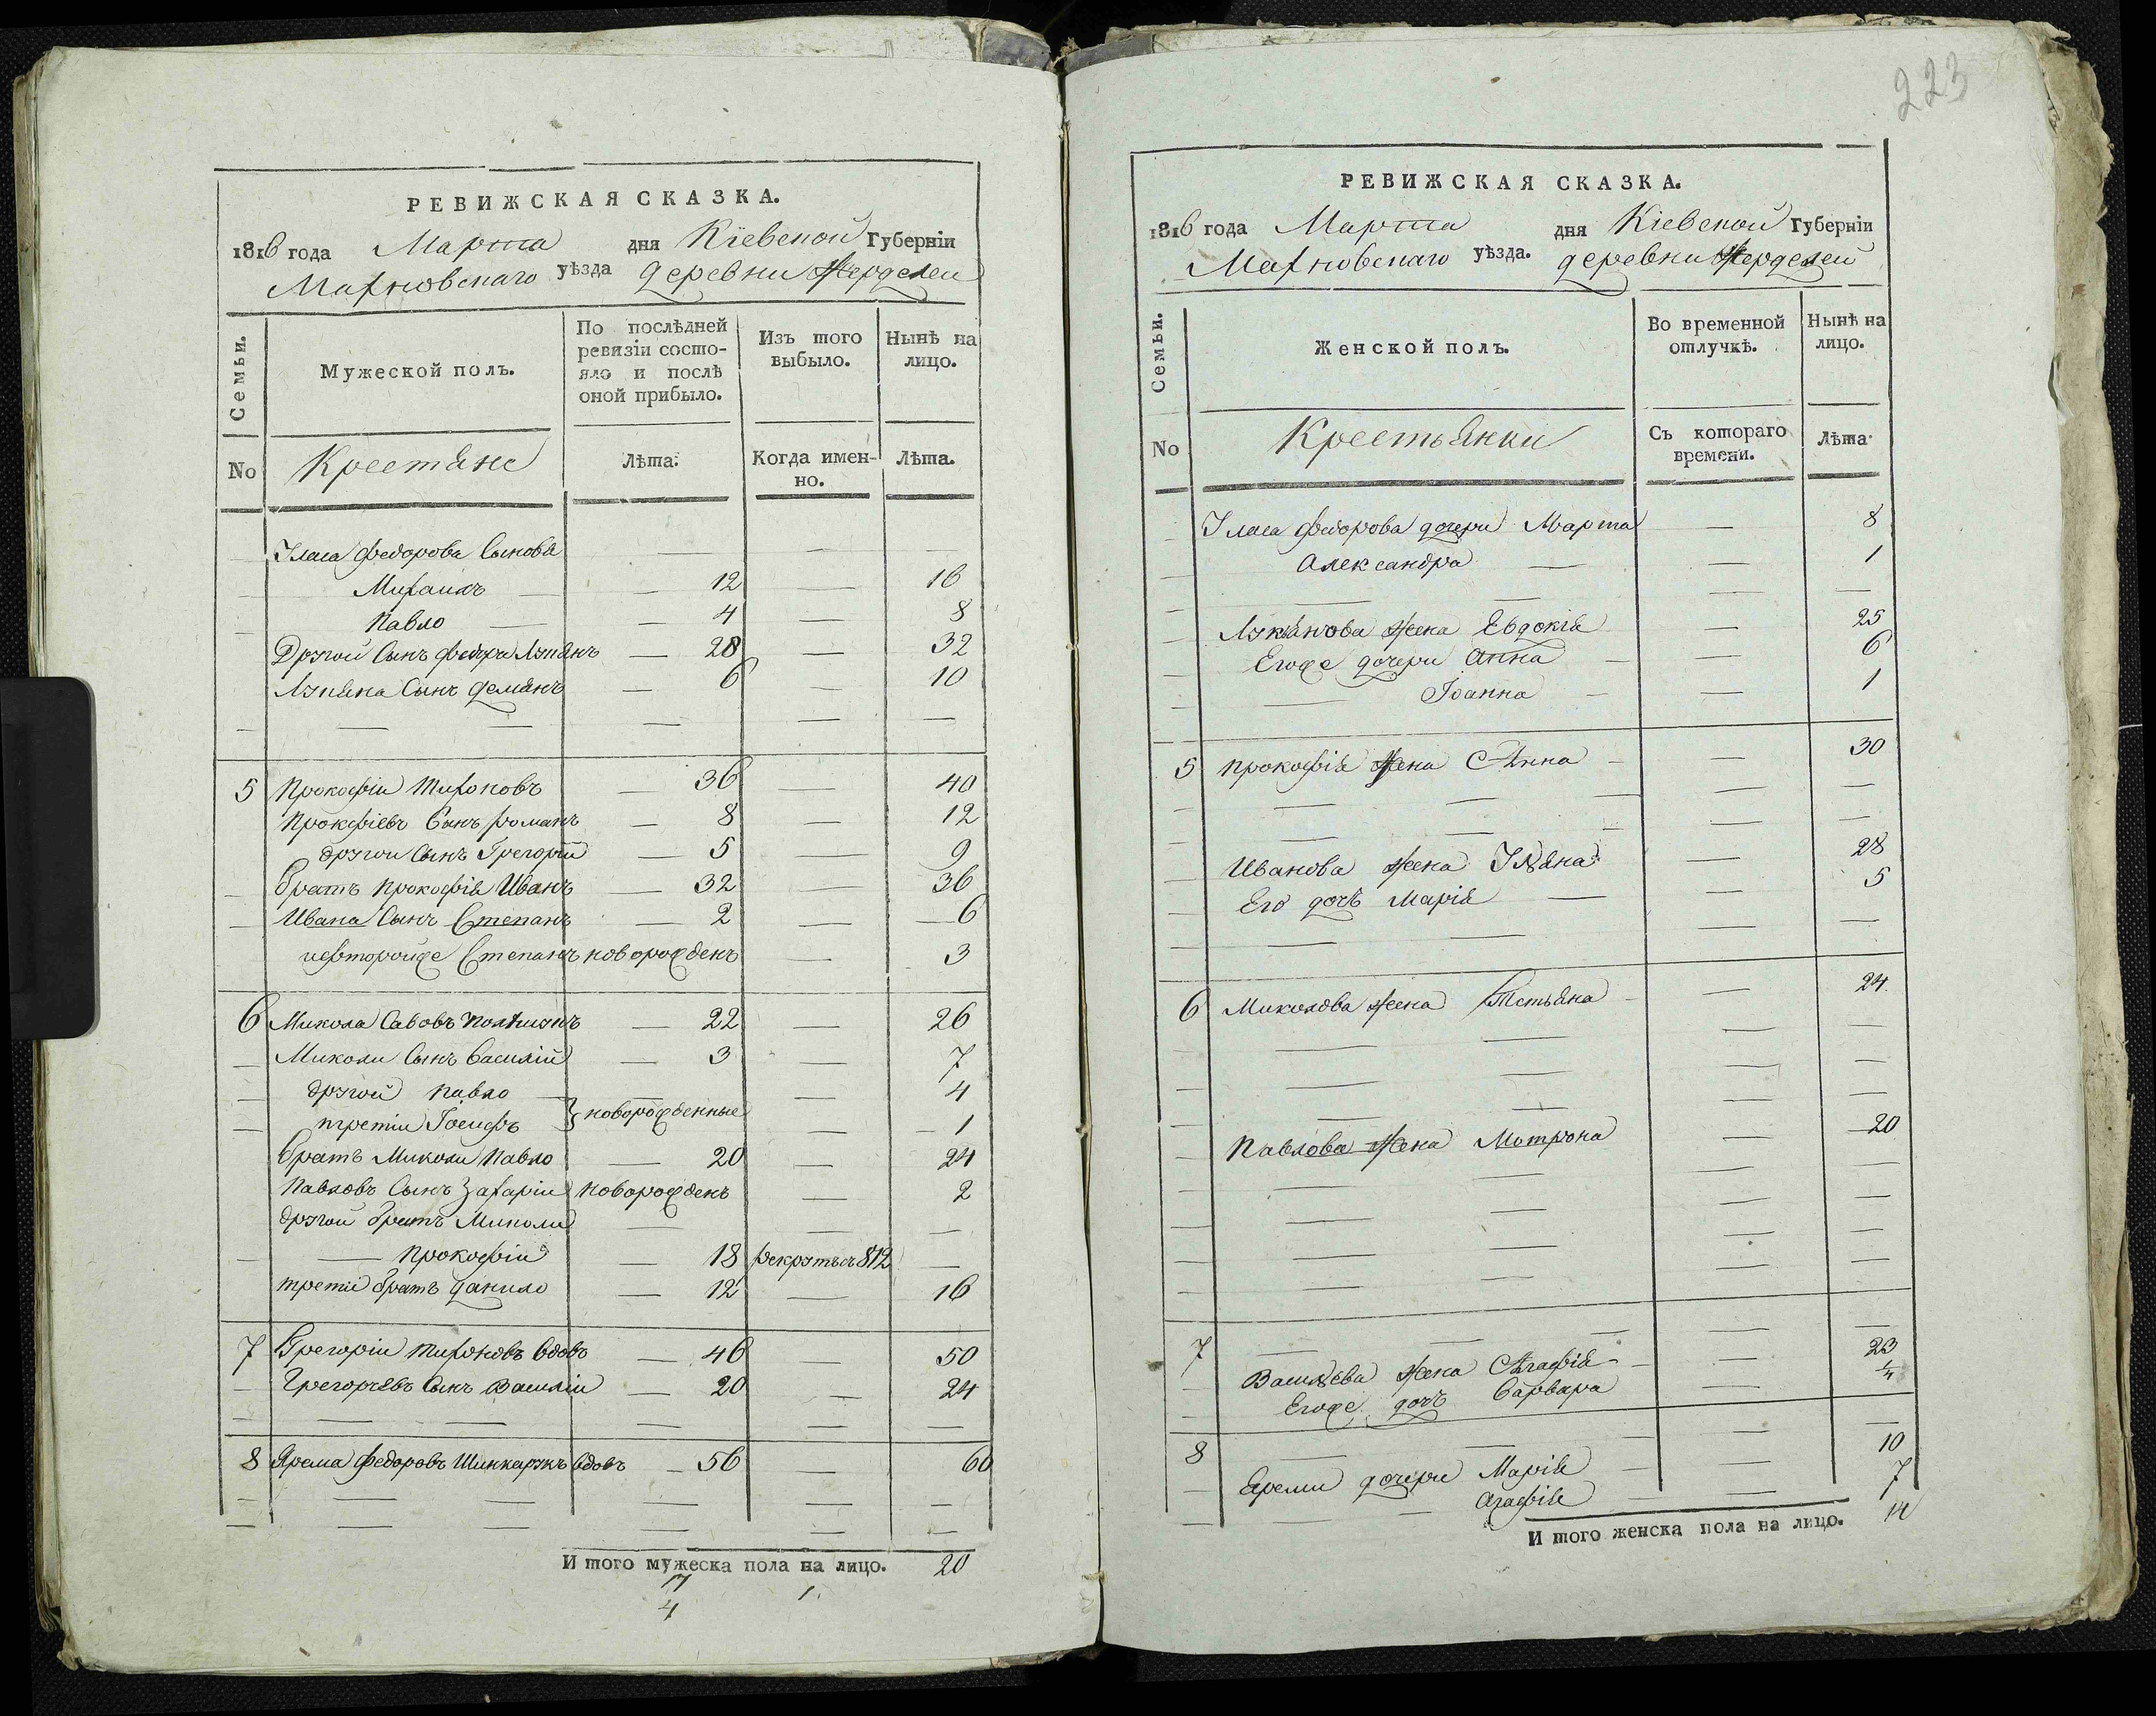 РЕВИЖСКАЯ СКАЗКА.
1816 года Марта дня Кіевской Губерніи
Махновскаго уѣзда деревни Жерделей
Семьи.
Мужеской полъ.
По послѣдней ревизіи состояло и послѣ оной прибыло.
Изъ того выбыло.
Нынѣ на лицо.
No Крестяне Лѣта. Когда именно. Лѣта.
Федорова Сыновя — — —
Михаилъ — — 12 — 16
Павло — — 4 — 8
Другой Сынъ Федора Лукянъ — 28 — 32
Лукяна Сынъ Демянъ — 6 — 10
— — — — —
5 Прокофіи Тихоновъ — 36 — 40
Прокофіевъ Сынъ Романъ — 8 — 12
другои Сынъ Григорій — 5 — 9
братъ Прокофія Иванъ — 32 — 36
Ивана Сынъ Степанъ — 2 — 6
Степанъ новорожденъ — 3
6 Микола Савовъ — 22 — 26
Миколи Сынъ Василій — 3 — 7
другой Павло — 4
третіи Іосифъ } новорожденные — 1
братъ Миколи Павло — 20 — 24
Павловъ Сынъ Захаріи новорожденъ — 2
другои братъ Миколи — — —
— Прокофіи — 18 рекрутъ 812 —
третіи братъ Данило — 12 — 16
7 Грегоріи Тихоновъ вдовъ — 46 — 50
Грегорѣевъ Сынъ Василіи — 20 — 24
— — — — —
8 Ярема Федоровъ Шинкарукъ вдовъ — 56 — 60
— — — — —
— — — — —
И того мужеска пола на лицо. 20
17 1.
4
223
РЕВИЖСКАЯ СКАЗКА.
1816 года Марта дня Кіевской Губерніи
Махновскаго уѣзда. деревни Жерделей
Семьи.
Женской полъ.
Во временной отлучкѣ.
Нынѣ на лицо.
No Крестьянки Съ котораго времени. Лѣта.
Федорова дочери Марта — 8
Александра — — 1
— — — —
Лукянова жена Евдокія — 25
Егоже дочери Анна — — 6
— Іоанна — — 1
5 Прокофія жена Анна — — 30
— — — —
— — — —
Иванова жена Уляна — 28
Его дочъ Марія — — 5
— — — —
6 Миколова жена Тетьяна — — 24
— — — —
— — — —
— — —
Павлова жена Мотрона — 20
— — — —
— — — —
— — — —
— — — —
7 — — — —
Василѣва жена Агафія — — 23
Егоже дочъ Варвара — 4
8 — — — —
Яреми дочери Марія — — 10
— — Агафія — — 7
И того женска пола на лицо. 14